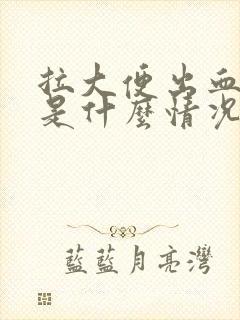 拉大便出血
是什麼情況
藍藍月亮灣